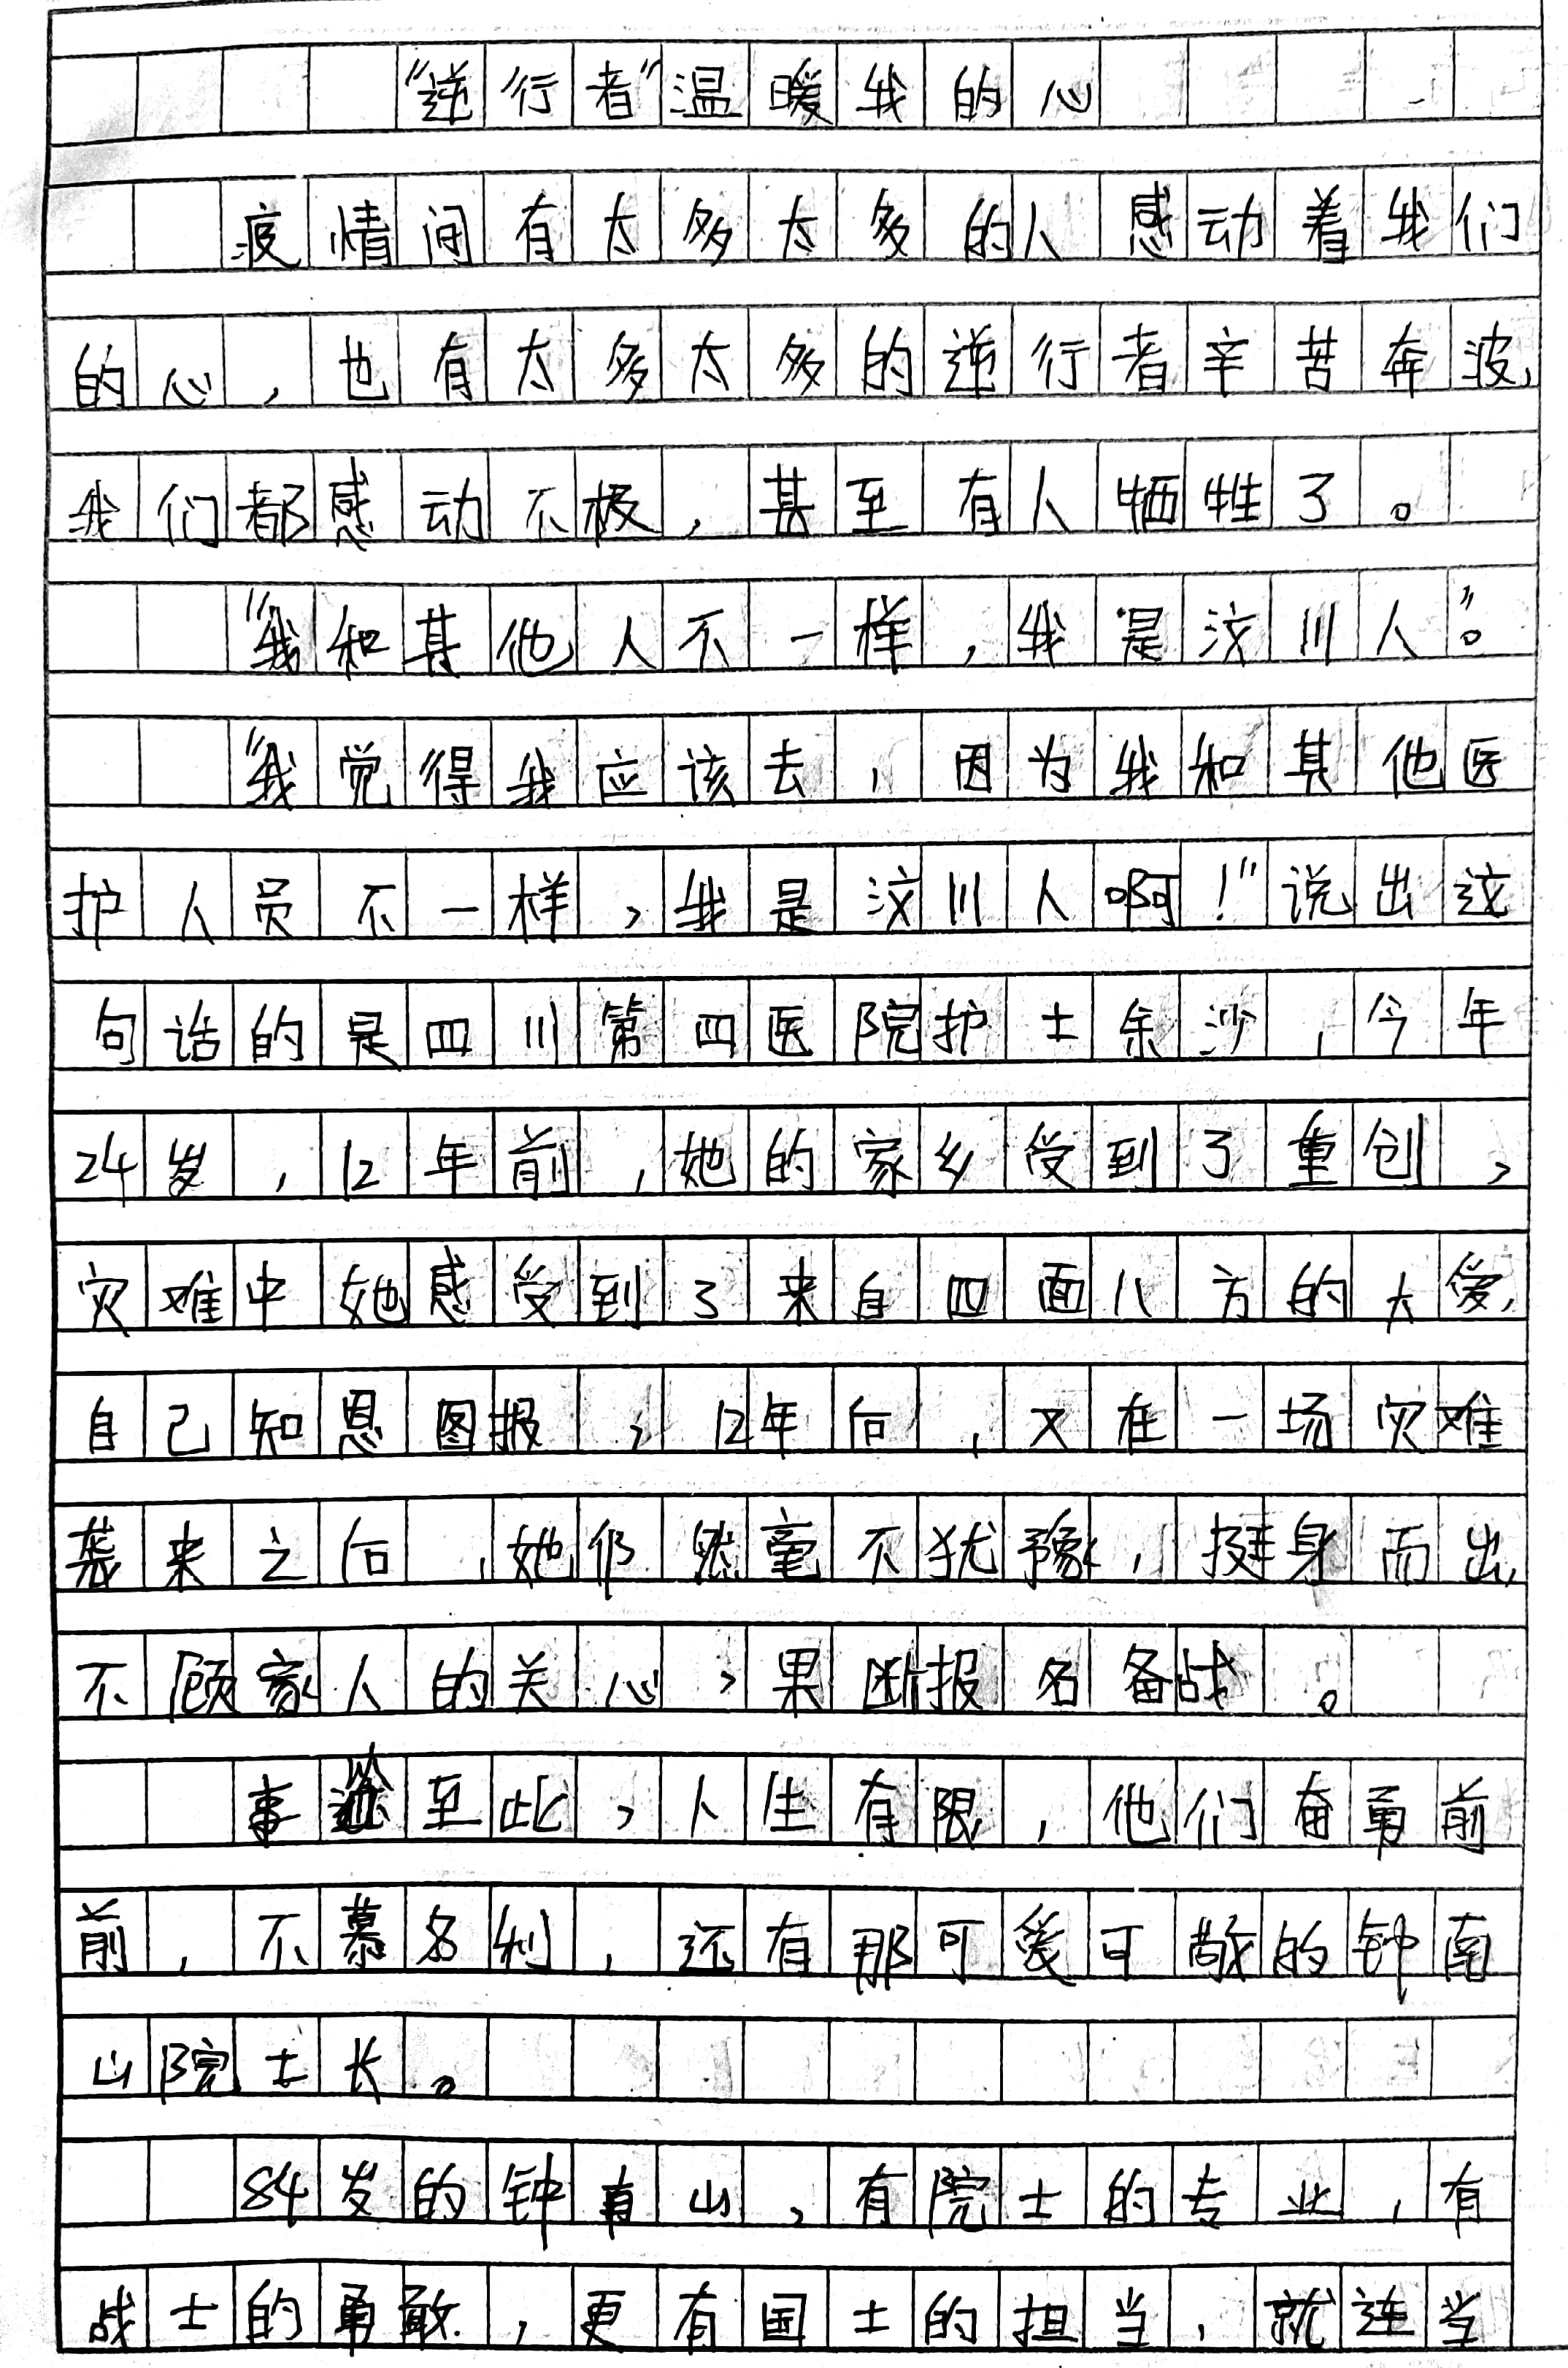 “逆行者”温暖我的心
疫情间有太多太多的人感动着我们
的心，也有太多太多的逆行者辛苦奔波，
我们都感动不极，甚至有人牺牲了。
“我和其他人不一样，我是汶川人”。
“我觉得我应该去，因为我和其他医
护人员不一样，我是汶川人啊！”说出这
句话的是四川第四医院护士余沙，今年
24岁，12年前，她的家乡受到了重创，
灾难中她感受到了来自四面八方的大爱，
自己知恩图报，12年后，又在一场灾难
袭来之后，她仍然毫不犹豫，挺身而出，
不顾家人的关心，果断报名备战。
事至此，人生有限，他们奋勇前
前，不慕名利，还有那可爱可敬的钟南
山院士长。
84岁的钟南山，有院士的专业，有
战士的勇敢，更有国士的担当，就连当